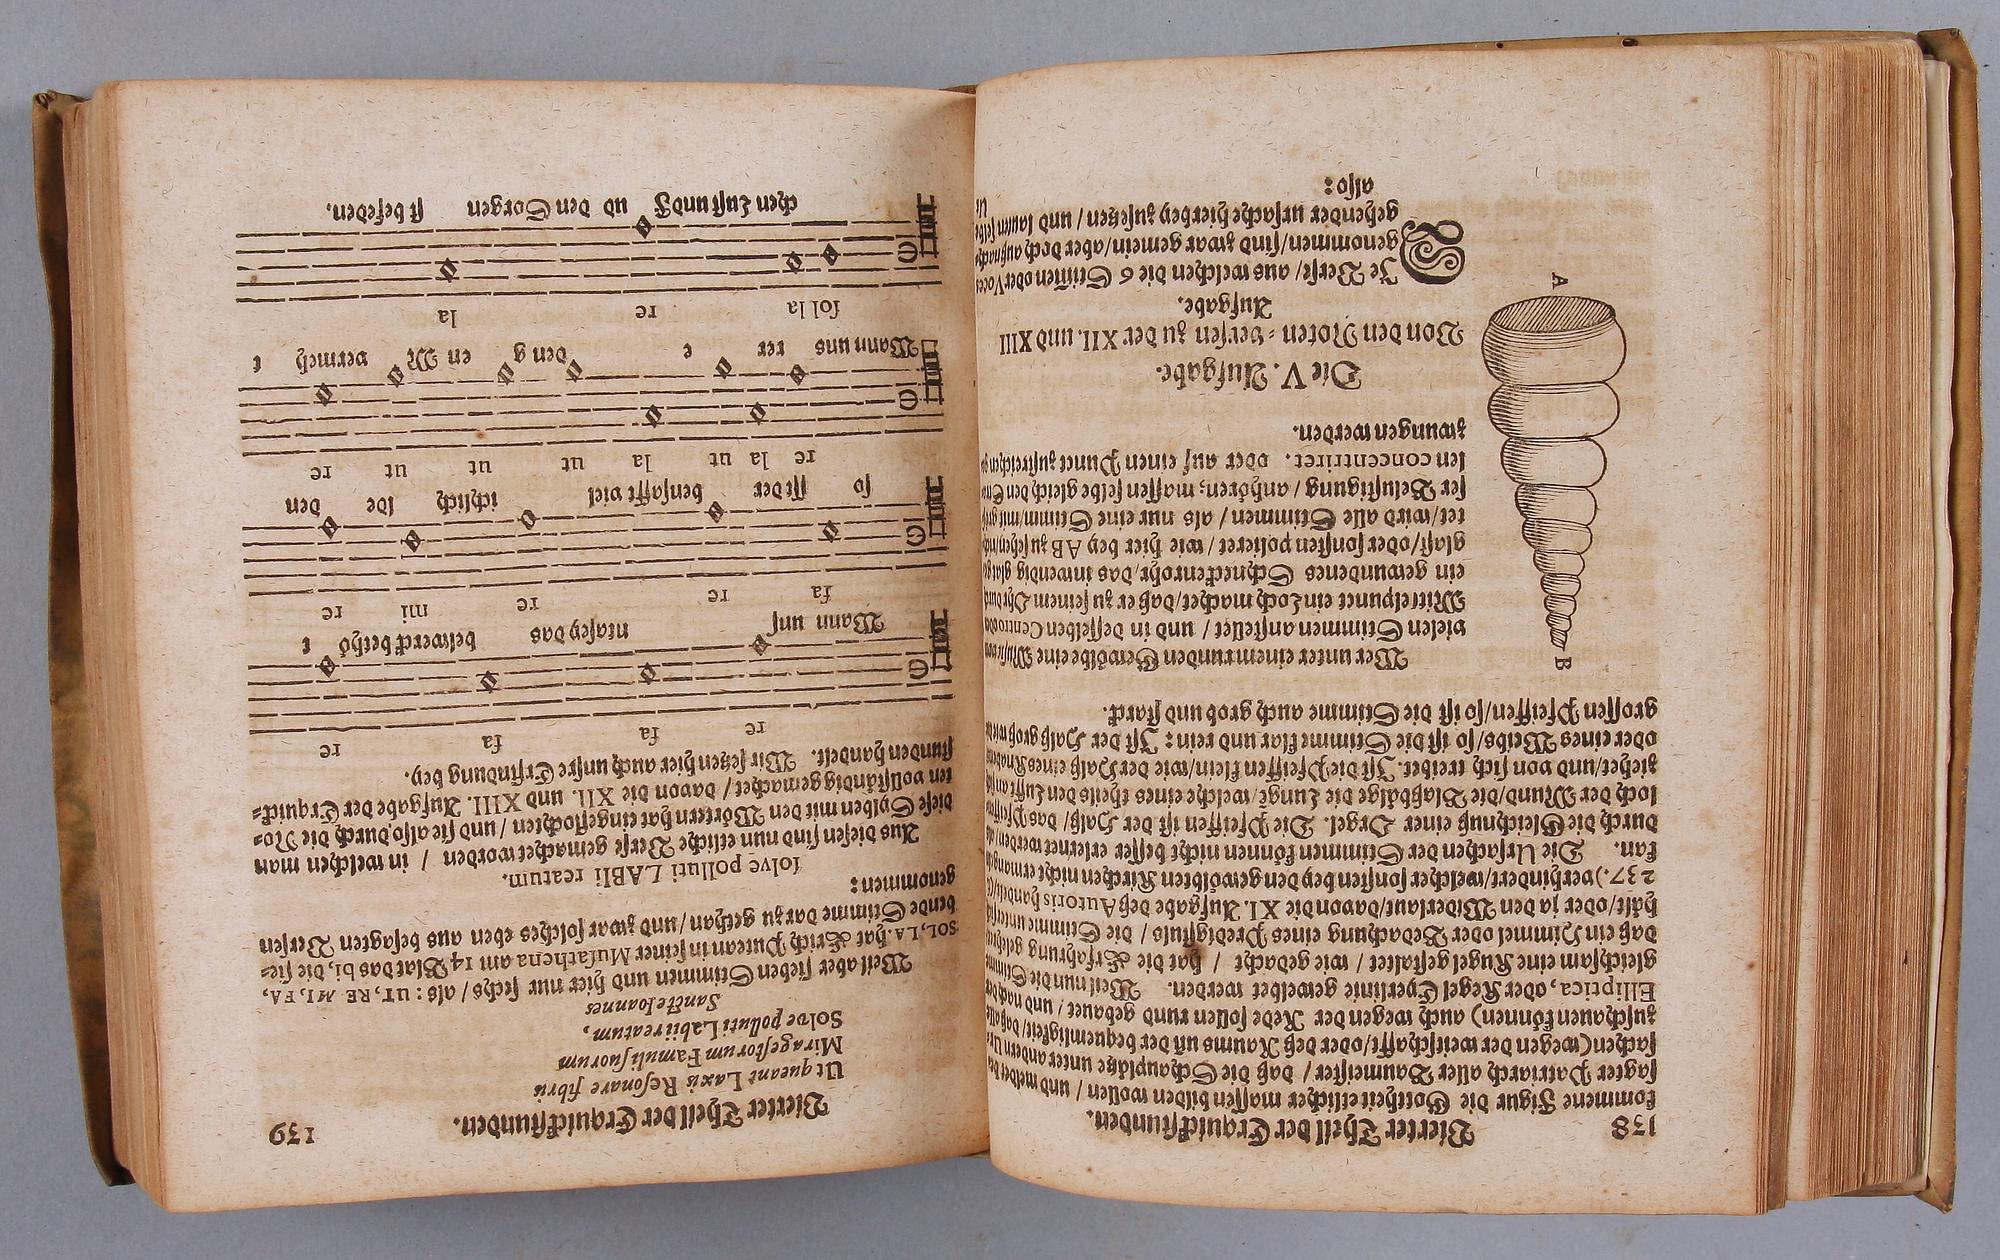 138 Vierter Theil der Erquickstunden.
kommene Figur die Gottheit etlicher massen bilden wollen / und
sagter Patriarch aller Baumeister / daß die Schauplätze unter andern
sachen (wegen der weitschafft / oder deß Raums uñ der bequemligkeit / daß alle
zuschauen können) auch wegen der Rede sollen rund gebauet / und nach der
Elliptica, oder Kegel Eyerlinie gewelbet werden. Weil nun die Stimme
gleichsam eine Kugel gestaltet / wie gedacht / hat die Erfahrung gelehret
daß ein Himmel oder Bedachung eines Predigstuls / die Stimme
hält / oder ja den Widerlaut / davon die XI. Aufgabe deß Autoris handelt /
237.) verhindert / welcher sonsten bey den gewölbten Kirchen nicht
kan. Die Ursachen der Stimmen können nicht besser erlernet werden / als
durch die Gleichnuß einer Orgel. Die Pfeiffen ist der Halß / das
loch der Mund / die Blaßbälge die Lunge / welche eines theils den Lufft an sich
ziehet / und von sich treibet. Ist die Pfeiffen klein / wie der Halß eines Knaben
oder eines Weibs / so ist die Stimme klar und rein: Ist der Halß groß wie die
grossen Pfeiffen / so ist die Stimme auch grob und starck.
Wer unter einem runden Gewölbe eine Music von
vielen Stimmen anstellet / und in desselben Centro oder
Mittelpunct ein Loch machet / daß er zu seinem Ohr durch
ein gewundenes Schneckenrohr / das inwendig glat
glasst / oder sonsten polieret / wie hier bey AB zu sehen /
tet / wird alle Stimmen / als nur eine Stimm / mit
ser Belustigung / anhören; massen selbe gleich den
len concentriret. oder auf einen Punct zustreichen
zwungen werden.
B
A
Die V. Aufgabe.
Von den Noten=versen zu der XII. und XIII
Aufgabe.
Die Verse / aus welchen die 6 Stiṁen oder Voces
genommen / sind zwar gemein / aber doch
gehender ursache hierbey zusetzen / und lauten selbe
also:
Ut
Vierter Theil der Erquickstunden. 139
Ut queant Laxis Resonare fibris
Mira gestorum Famuli suorum
Solve polluti Labii reatum,
Sancte Ioannes
Weil aber sieben Stimmen und hier nur sechs / als: UT, RE MI, FA,
SOL, LA. hat Erich Putean in seiner Musathena am 14 Blat das bi, die sie=
bende Stimme dar zu gethan / und zwar solches eben aus besagten Versen
genommen:
solve polluti LABIi reatum.
Aus diesen sind nun etliche Verse gemachet worden / in welchen man
diese Sylben mit den Wörtern hat eingeflochten / und sie also durch die No=
ten vollständig gemachet / davon die XII. und XIII. Aufgabe der Erquick=
stunden handelt. Wir setzen hier auch unsre Erfindung bey.
re fa fa re
Wann uns ntasey das belwerck bethö t
fa re re mi re
so st der bensafft viel ichlich lde den
re la ut la ut ut ut re
Wann uns rer e den g en M vermeh t
sol la re la
chen Lust und F ud den Sorgen st befeden.